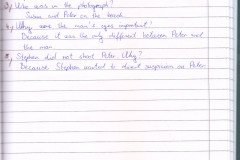 Who was in the photograph?
and Peter on the
Why were the man's eyes important?
Because it was the only different between Peter and
the man.
Stephen did not shoot Peter. Why?
Because Stephen wanted to divert suspicion on Peter